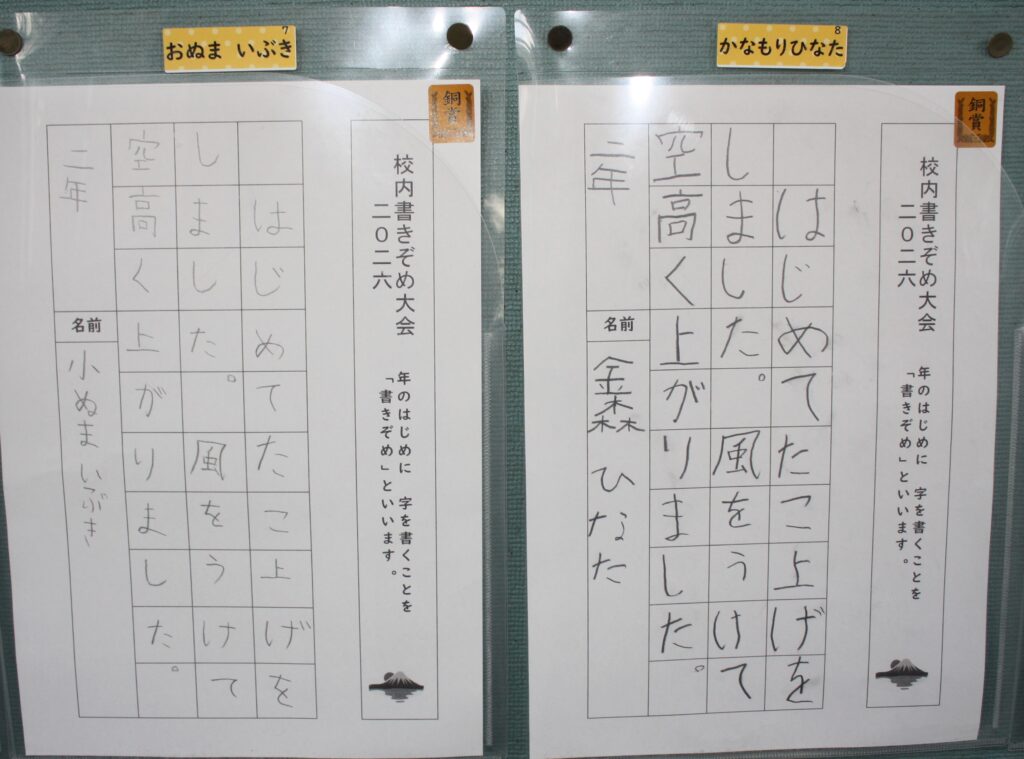 7
おぬま いぶき
銅賞
校内書きぞめ大会
二〇二六
年のはじめに 字を書くことを
「書きぞめ」といいます。
はじめてたこ上げを
しました。風をうけて
空高く上がりました。
二年
名前
小ぬま いぶき
8
かなもりひなた
銅賞
校内書きぞめ大会
二〇二六
年のはじめに 字を書くことを
「書きぞめ」といいます。
はじめてたこ上げを
しました。風をうけて
空高く上がりました。
二年
名前
金森 ひなた